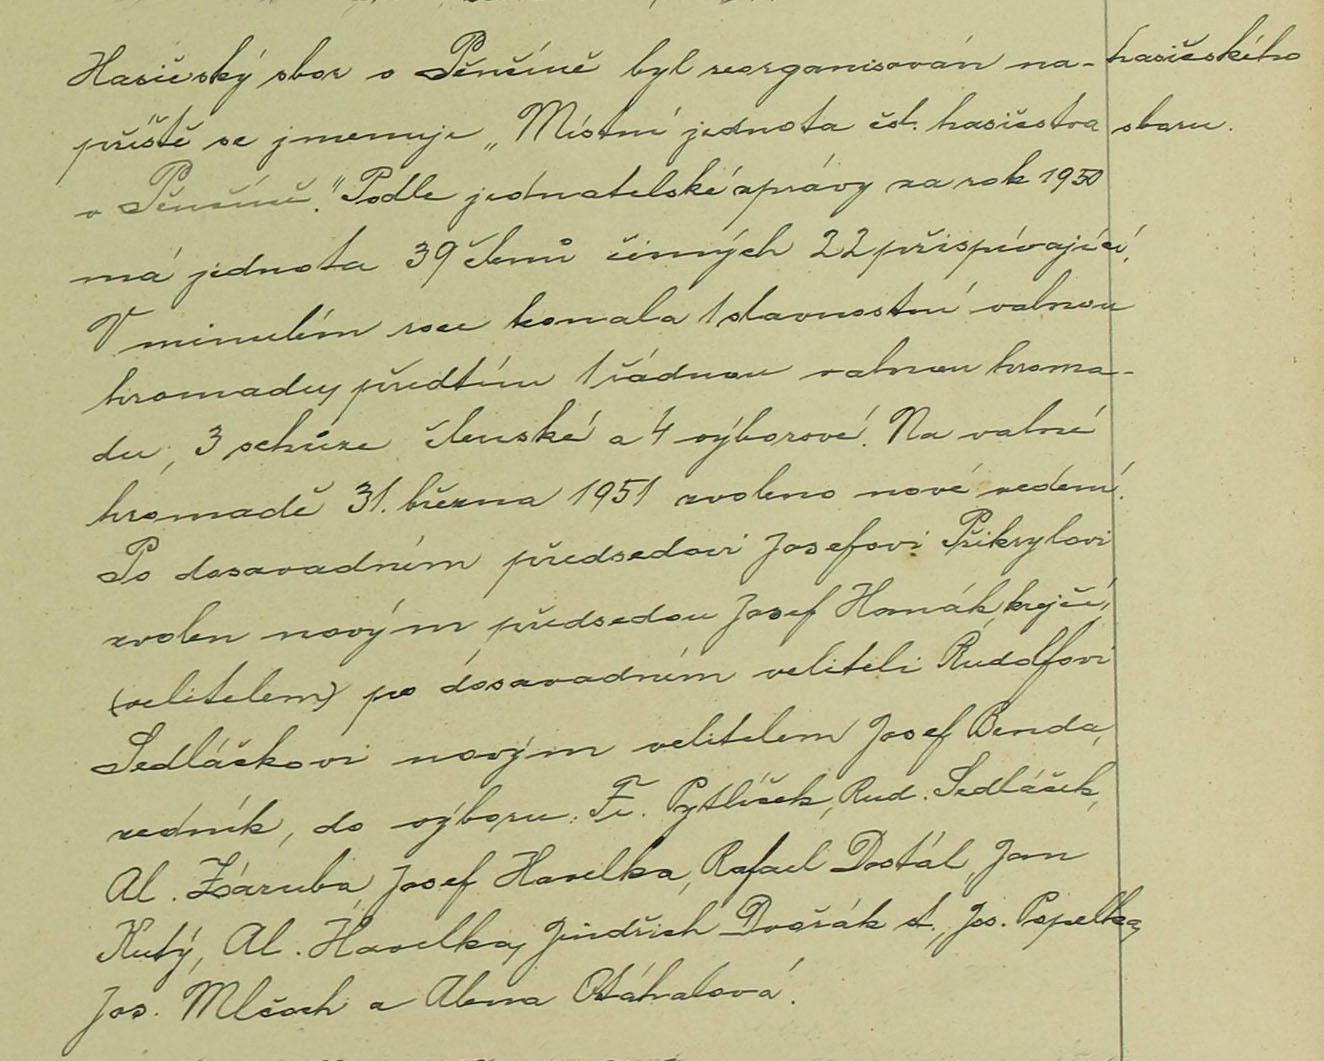 Hasičský sbor v Pěnčíně byl reorganisován na- hasičského
příště se jmenuje „Místní jednota čsl. hasičstva sboru.
v Pěnčíně." Podle jednatelské zprávy za rok 1950
má jednota 39 členů činných 22 přispívající.
V minulém roce konala 1 slavnostní valnou
hromadu, předtím 1 řádnou valnou hroma-
du, 3 schůze členské a 4 výborové. Na valné
hromadě 31. března 1951 zvoleno nové vedení.
Po dosavadním předsedovi Josefovi Přikrylovi
zvolen novým předsedou Josef Homák, krejčí,
(velitelem) po dosavadním veliteli Rudolfovi
Sedláčkovi novým velitelem Josef Benda,
zedník, do výboru: Fr. Pytlíček, Rud. Sedláček,
Al. Záruba, Josef Havelka, Rafael Dostál, Jan
Kutý, Al. Havelka, Jindřich Dvořák st., Jos. Popelka,
Jos. Mlčoch a Alena Otáhalová.